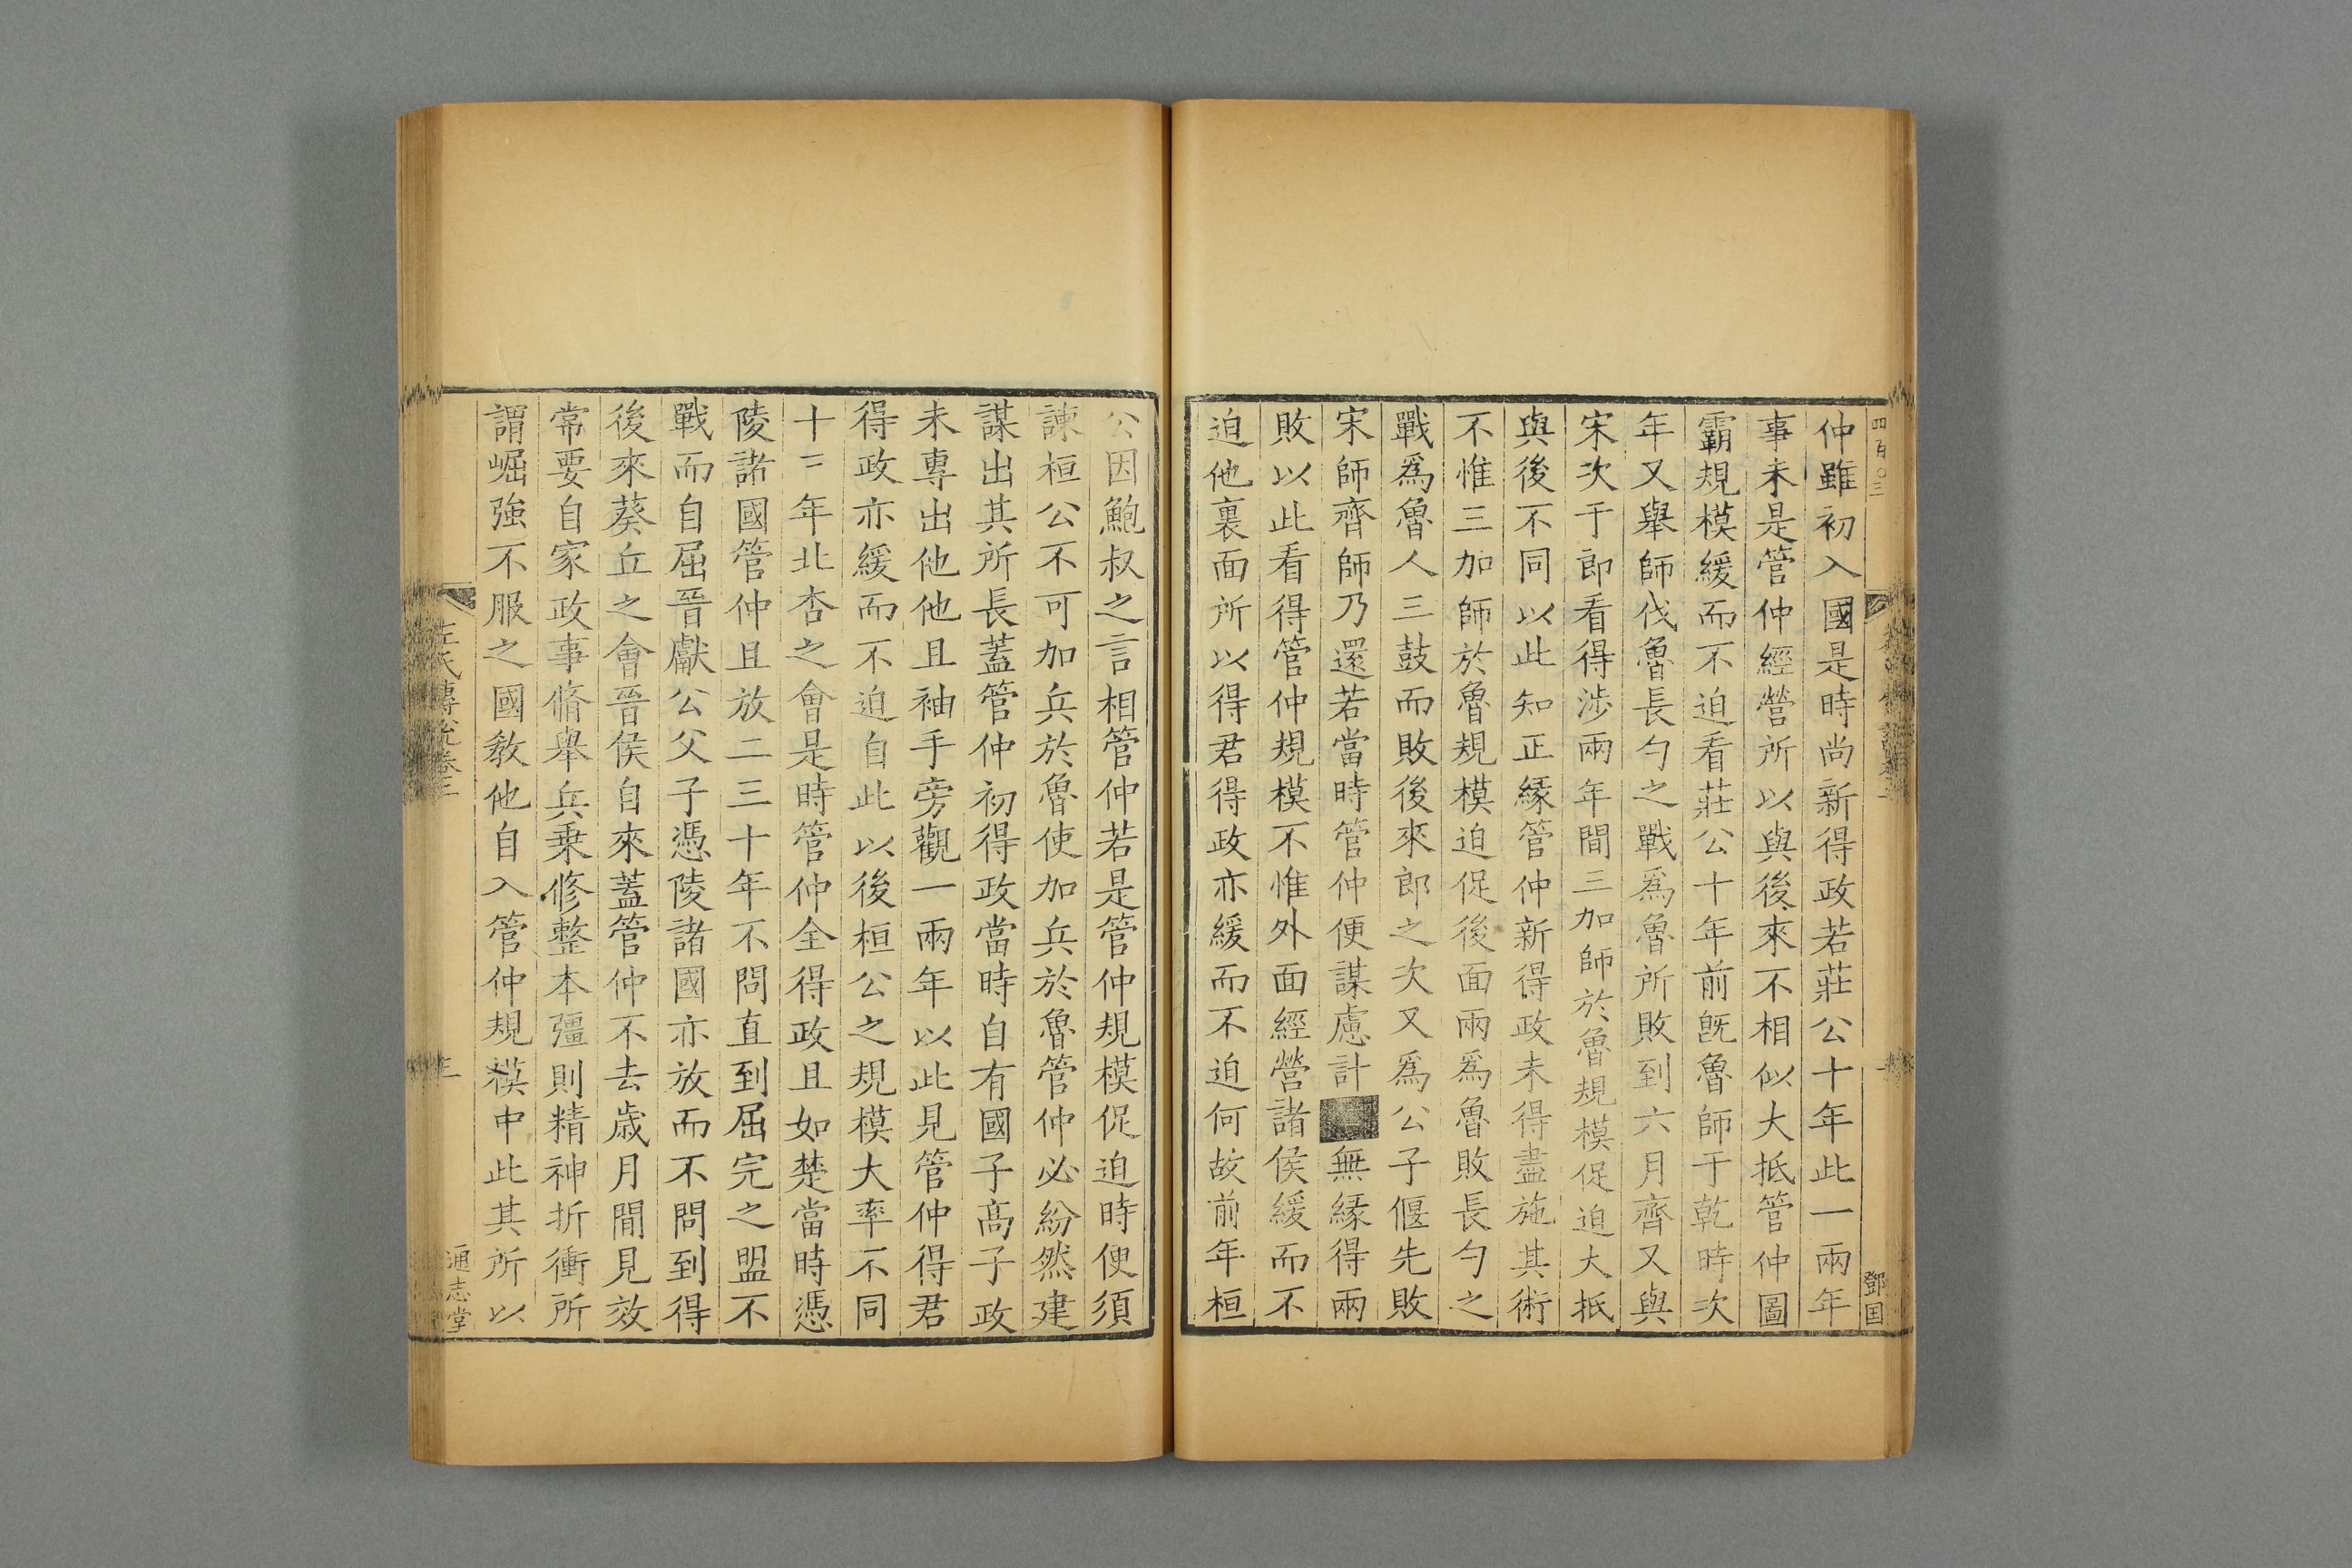 四百〇三
鄧国
仲雖初入國是時尚新得政若莊公十年此一兩年
事未是管仲經營所以與後來不相似大抵管仲圖
霸規模緩而不迫看莊公十年前旣魯師于乾時次
年又舉師伐魯長勺之戰爲魯所敗到六月齊又與
宋次于郎看得涉兩年間三加師於魯規模促迫大抵
與後不同以此知正緣管仲新得政未得盡施其術
不惟三加師於魯規模迫促後面兩爲魯敗長勺之
戰爲魯人三鼓而敗後來郎之次又爲公子偃先敗
宋師齊師乃還若當時管仲便謀慮計■無緣得兩
敗以此看得管仲規模不惟外面經營諸侯緩而不
迫他裏面所以得君得政亦緩而不迫何故前年桓
公因鮑叔之言相管仲若是管仲規模促迫時便須
諫桓公不可加兵於魯使加兵於魯管仲必紛然建
謀出其所長蓋管仲初得政當時自有國子高子政
未專出他他且袖手旁觀一兩年以此見管仲得君
得政亦緩而不迫自此以後桓公之規模大率不同
十三年北杏之會是時管仲全得政且如楚當時憑
陵諸國管仲且放二三十年不問直到屈完之盟不
戰而自屈晉獻公父子憑陵諸國亦放而不問到得
後來葵丘之會晉侯自來蓋管仲不去歲月間見效
常要自家政事脩舉兵乗修整本彊則精神折衝所
謂崛強不服之國敎他自入管仲規模中此其所以
左氏傳說卷三
三
通志堂